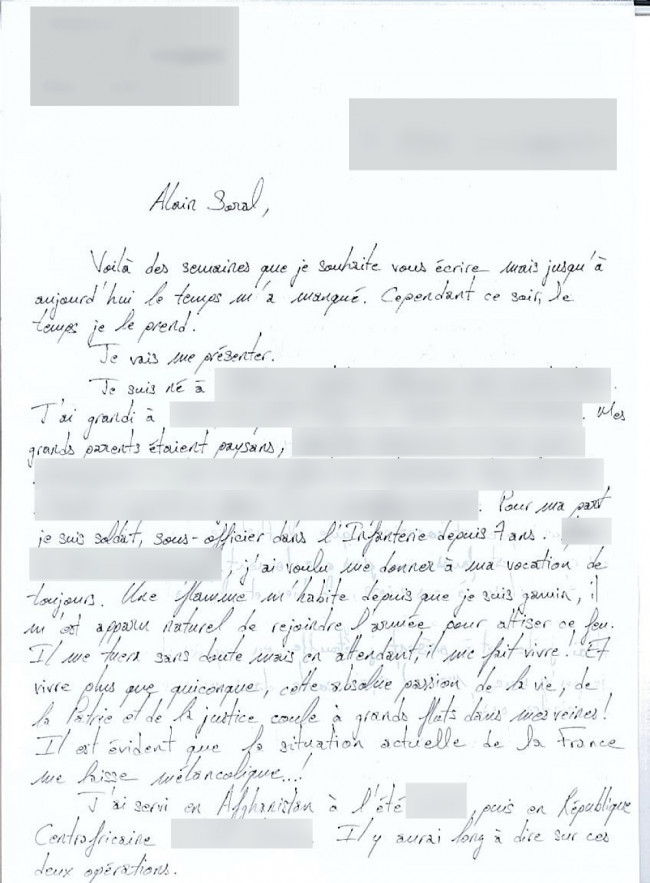 Alain Soral,
Voilà des semaines que je souhaite vous écrire mais jusqu'à
aujourd'hui le temps m'a manqué. Cependant ce soir, le
temps je le prend.
Je vais me présenter.
Je suis né à
J'ai grandi à . Mes
grands parents étaient paysans,
. Pour ma part
je suis soldat, sous-officier dans l'Infanterie depuis 7 ans.
j'ai voulu me donner à ma vocation de
toujours. Une flamme m'habite depuis que je suis gamin, il
m'est apparu naturel de rejoindre l'armée pour attiser ce feu.
Il me tuera sans doute mais en attendant, il me fait vivre ! Et
vivre plus que quiconque, cette absolue passion de la vie, de
la Patrie et de la justice coule à grands flots dans mes veines !
Il est évident que la situation actuelle de la France
me laisse mélancolique...!
J'ai servi en Afghanistan à l'été , puis en République
Centrafricaine . Il y aurai long à dire sur ces
deux opérations.